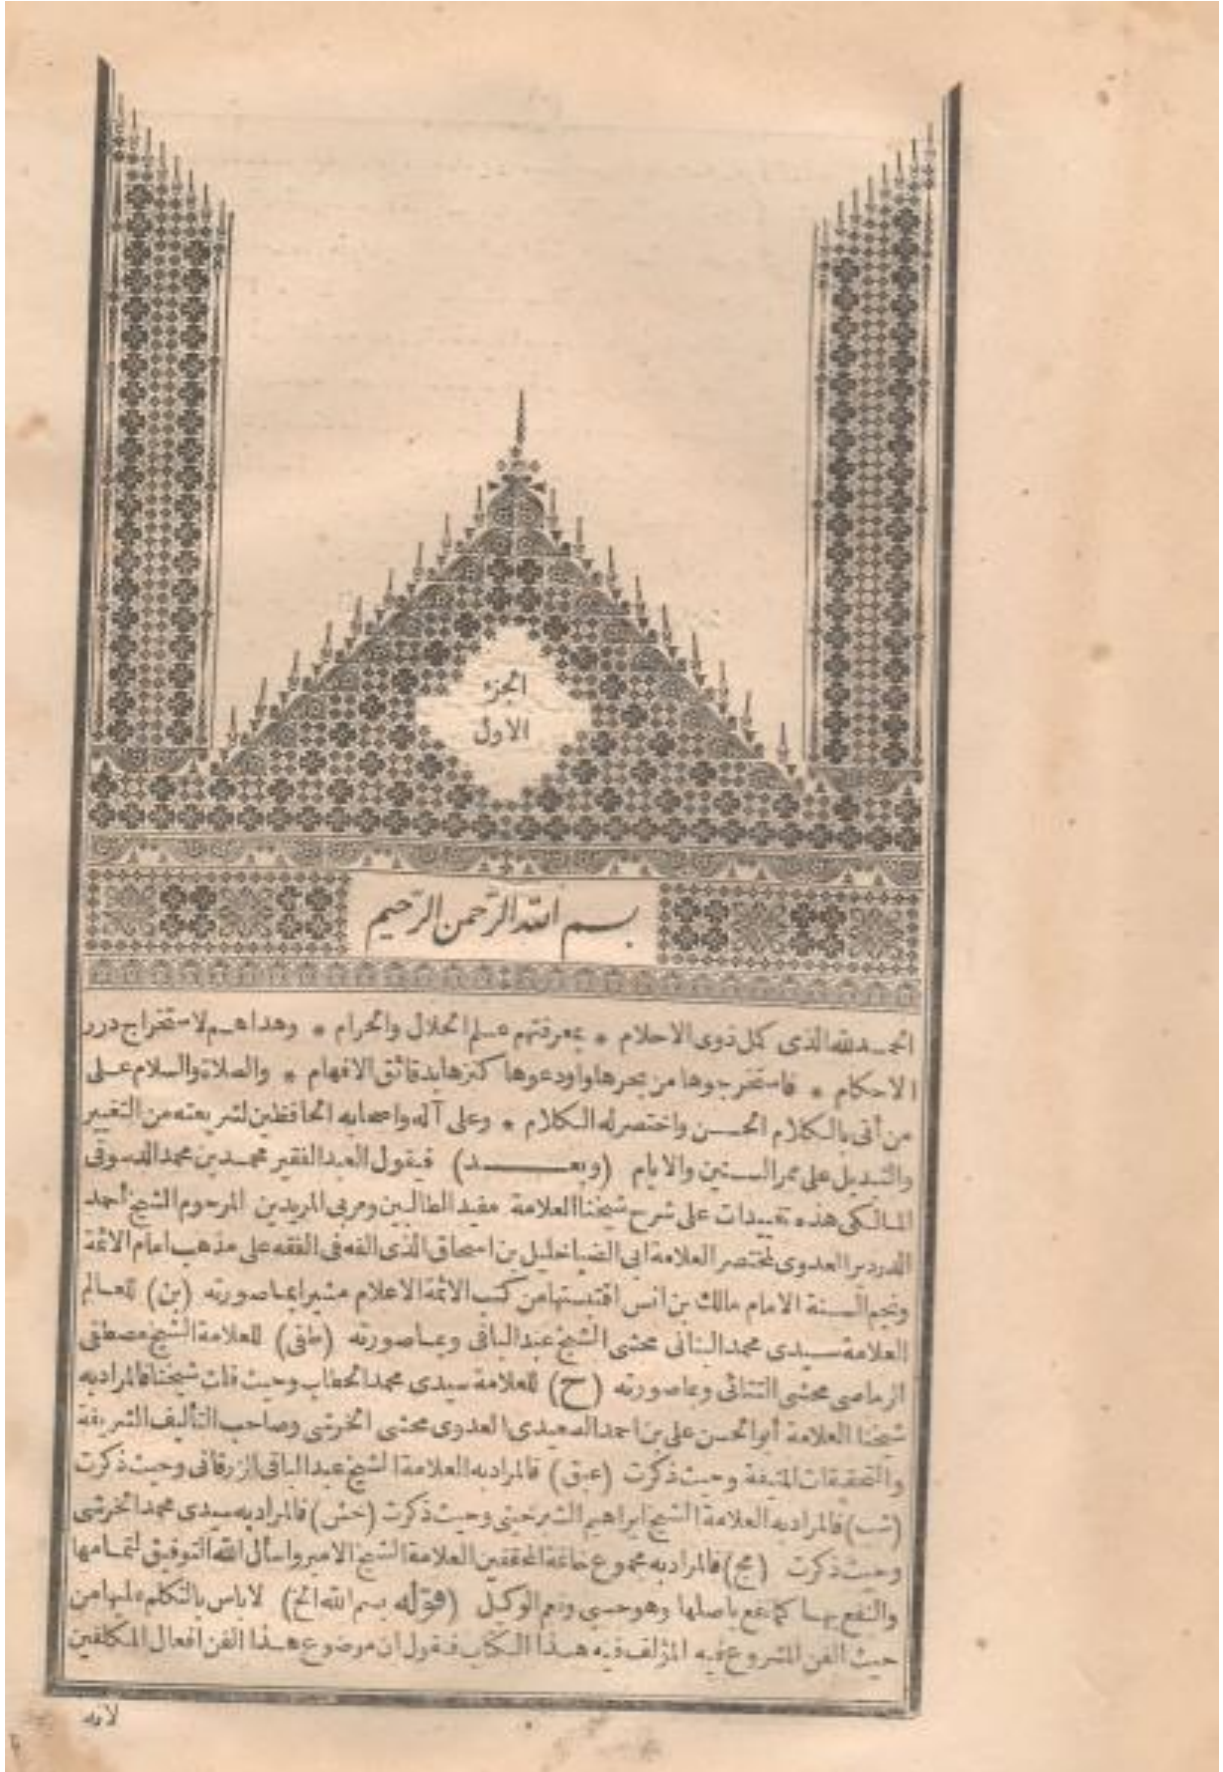 الجزء
الاول
بسم الله الرّحمن الرّحيم
الحمد لله الذى كمل ذوى الاحلام * بمعرفتهم علم الحلال والحرام * وهداهم لاستخراج درر
الاحكام * فاستخرجوها من بحرها واودعوها كنزها بدقائق الافهام * والصلاة والسلام على
من أتى بالكلام الحسن واختصر له الكلام * وعلى آله واصحابه الحافظين لشريعته من التغيير
والتبديل على ممر السنين والايام (وبعد) فيقول العبد الفقير محمد بن محمد الدسوقى
المالكى هذه تقييدات على شرح شيخنا العلامة مفيد الطالبين ومربى المريدين المرحوم الشيخ أحمد
الدردير العدوى لمختصر العلامة ابى الضيا خليل بن اسحاق الذى الفه فى الفقه على مذهب امام الائمة
ونجم السنة الامام مالك بن انس اقتبستها من كتب الائمة الاعلام مشيرا بما صورته (بن) للعالم
العلامة سيدى محمد البنانى محشى الشيخ عبد الباقى وبما صورته (طفى) للعلامة الشيخ مصطفى
الرماصى محشى التتائى وبما صورته (ح) للعلامة سيدى محمد الحطاب وحيث قلت شيخنا فالمراد به
شيخنا العلامة أبو الحسن على بن احمد الصعيدى العدوى محشى الخرشى وصاحب التأليف الشريفة
والتحقيقات المنيفة وحيث ذكرت (عبق) فالمراد به العلامة الشيخ عبد الباقى الزرقانى وحيث ذكرت
(شب) فالمراد به العلامة الشيخ ابراهيم الشبرخيتى وحيث ذكرت (خش) فالمراد به سيدى محمد الخرشى
وحيث ذكرت (مج) فالمراد به مجموع خاتمة المحققين العلامة الشيخ الامير واسأل الله التوفيق لتمامها
والنفع بها كما نفع باصلها وهو حسبى ونعم الوكيل (قوله بسم الله الخ) لا باس بالتكلم عليها من
حيث الفن المشروع فيه المؤلف فيه هذا الكتاب فنقول ان موضوع هذا الفن افعال المكلفين
لانه